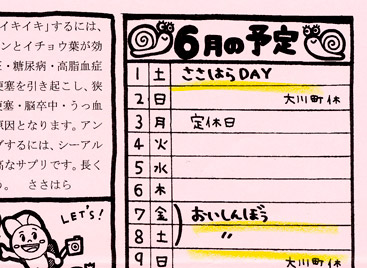 イキイキ」するには、
ンとイチョウ葉が効
・糖尿病・高脂血症
塞を引き起こし、狭
塞・脳卒中・うっ血
原因となります。アン
するには、シーアル
なサプリです。長く
。 ささはら
LET'S!
6月の予定
1 土 ささはらDAY
2 日 大川町休
3 月 定休日
4 火
5 水
6 木
7 金 おいしんぼう
8 土 〃
9 日 大川町休